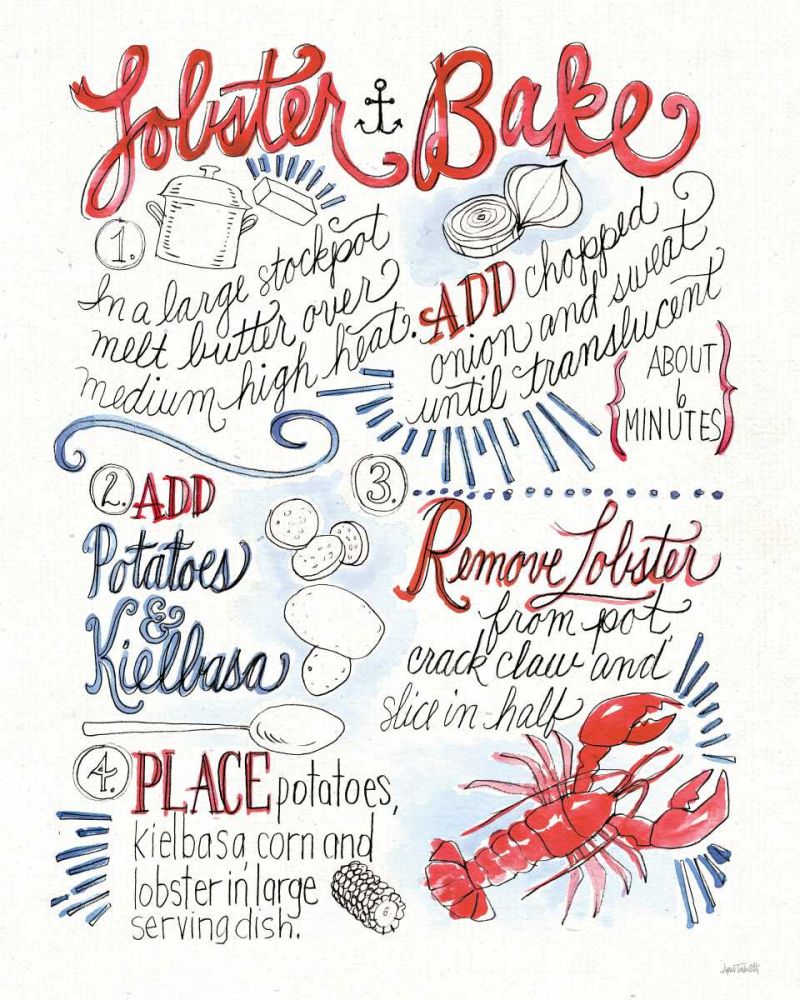 Lobster Bake
1.
In a large stockpot
melt butter over
medium high heat.
ADD chopped
onion and sweat
until translucent
{ABOUT
6
MINUTES}
2. ADD
Potatoes
&
Kielbasa
3.
Remove Lobster
from pot,
crack claw and
slice in half
4. PLACE potatoes,
kielbasa, corn and
lobster in large
serving dish.